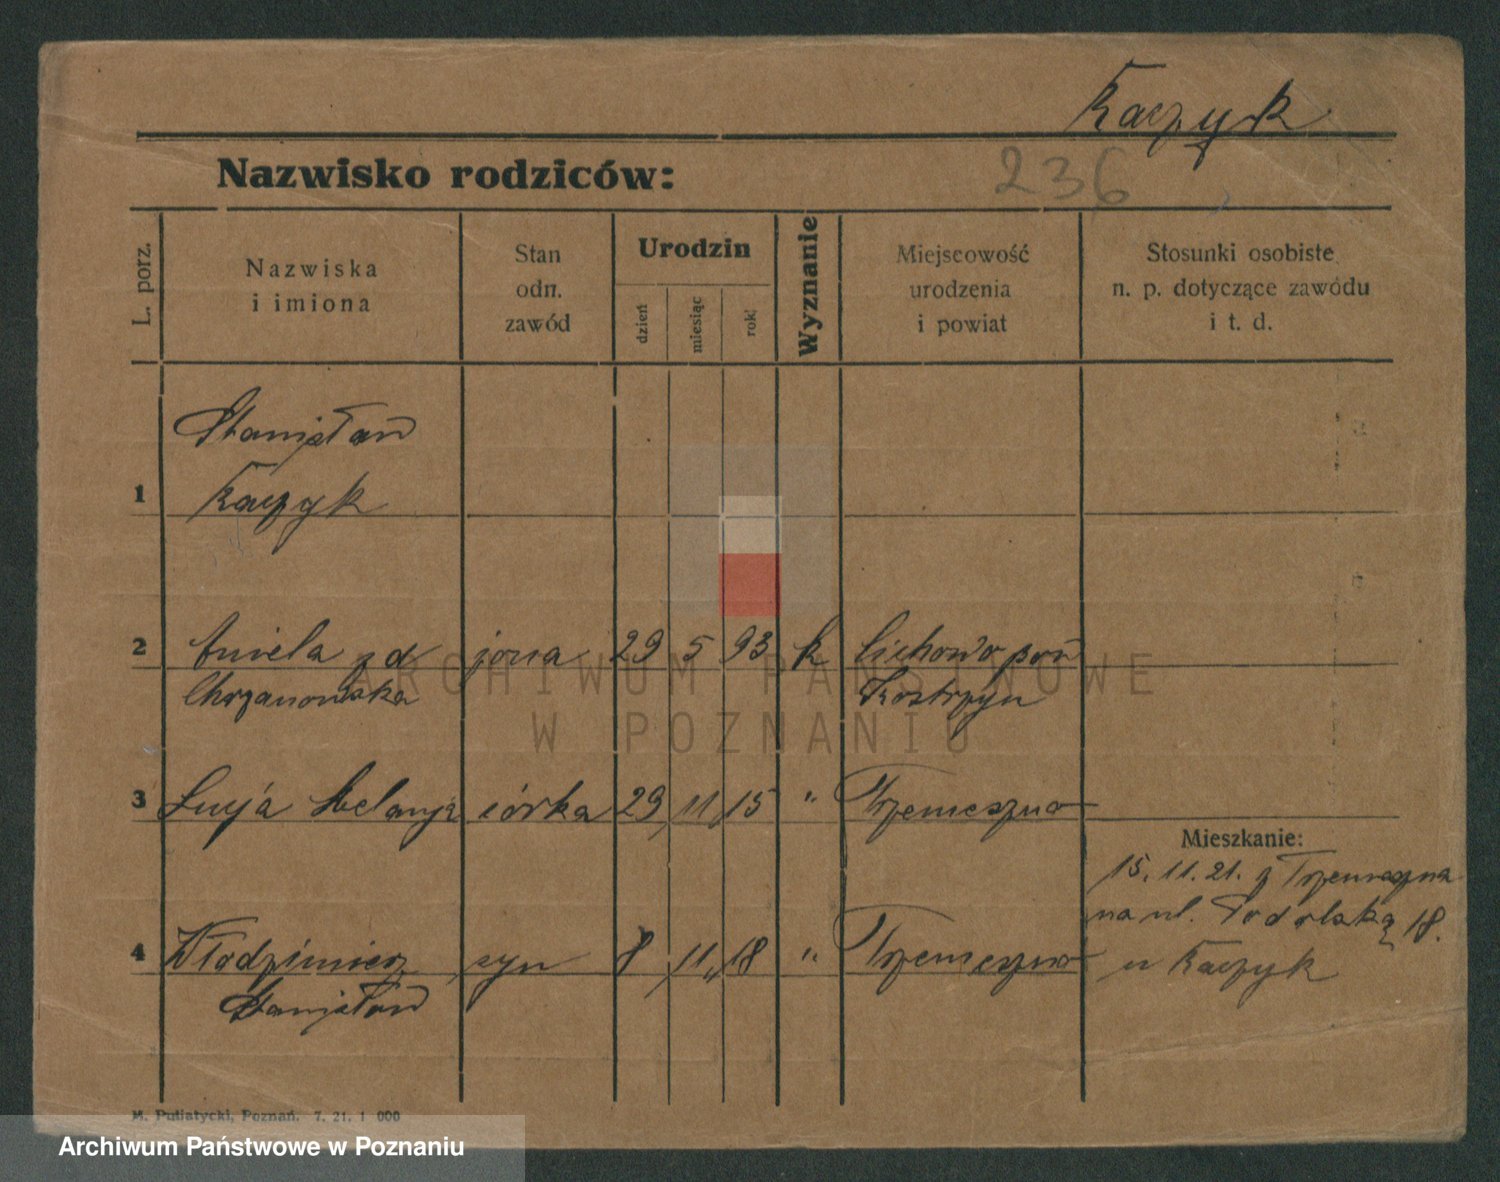 Kaczyk
Nazwisko rodziców:
236
L. porz.
Nazwiska
i imiona
Stan
odn.
zawód
Urodzin
dzień
miesiąc
rok
Wyznanie
Miejscowość
urodzenia
i powiat
Stosunki osobiste
n. p. dotyczące zawodu
i t. d.
Stanisław
1 Kaczyk
2 Aniela z d żona 29 5 93 k Cichowo pow
Chrzanowska Kostrzyn
3 Lucja Melanja córka 29 11 15 " Trzemeszno
Mieszkanie:
15. 11. 21. z Trzemeszna
na ul. Podolską 18.
4 Włodzimierz syn 8 11 18 " Trzemeszno u Kaczyk
Stanisław
M. Putiatycki, Poznań. 7. 21. 1 000
ARCHIWUM PAŃSTWOWE
W POZNANIU
Archiwum Państwowe w Poznaniu